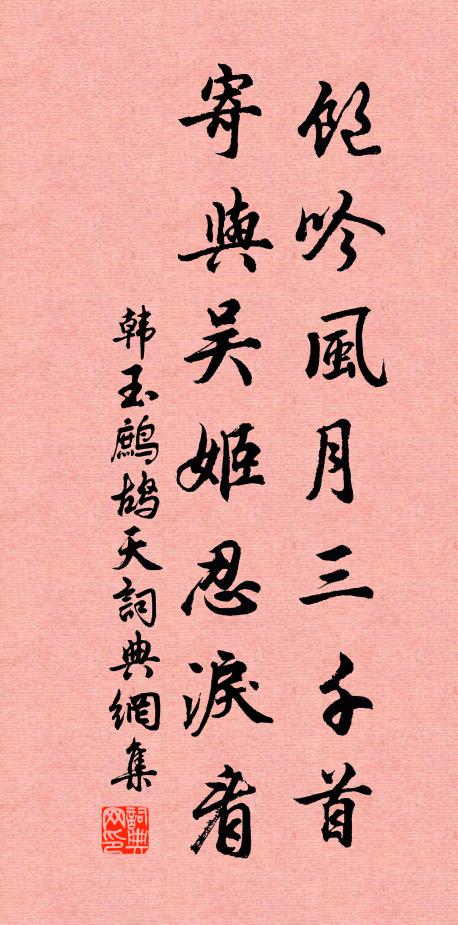 飽吟風月三千首
寄與吳姬忍淚看
韓玉鷓鴣天詞典網集
詞典
网印